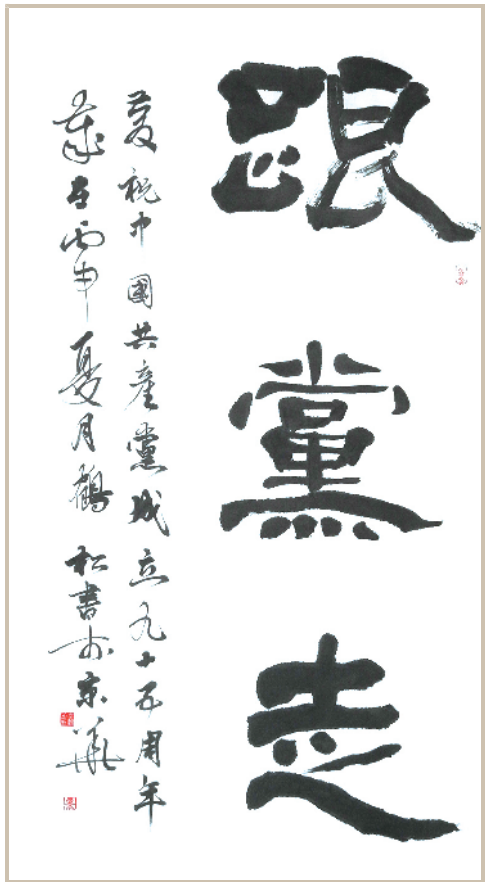 跟黨走
慶祝中國共產黨成立九十五周年
歲在丙申夏月鶴松書於京華